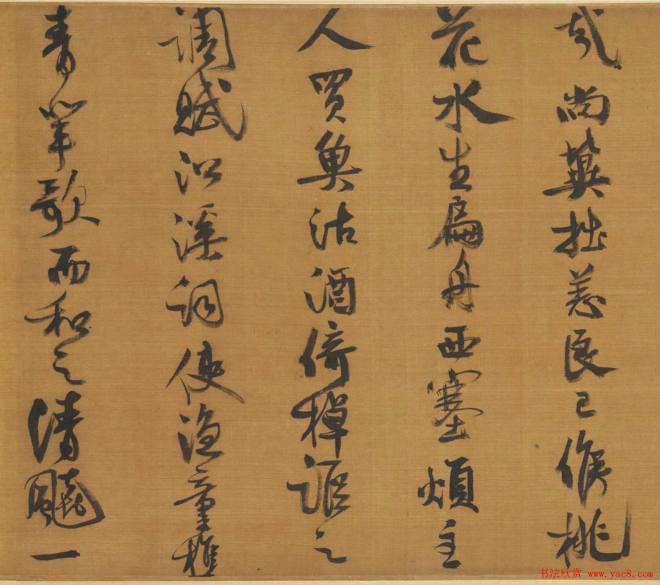 哉尚冀拙恙良已候桃
花水生扁舟西塞烦主
人買魚沽酒倚棹謳之
調賦沿溪詞使漁童樵
青箏歌而和之清飈一
书法欣赏 www.yac8.com